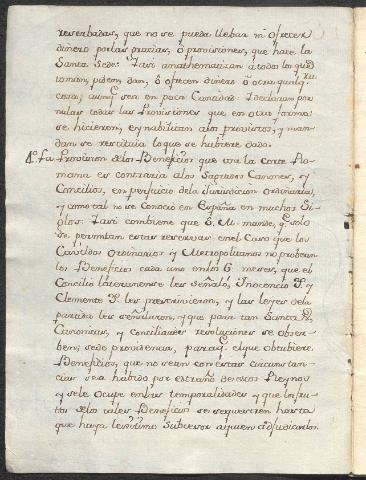 reserbadas, que no se pueda llebar ni ofrecer
dinero por las gracias, ò provisiones, que hace la
Santa Sede: I asi anathematizan a todos los que
toman, piden, dan, ò ofrecen dinero ò otra qualq.ra
cosa, aunq.e sea en poca Cantidad. I declaran por
nulas todas las Provisiones que en otra forma
se hicieren, e ynabilitan a los provistos, y man-
dan se restituia lo que se hubiere dado.
La Provision de los Beneficios que con la corte Ro-
mana es contraria a los Sagrados Canones, y
Concilios, en perjuicio de la Jurisdicion Ordinaria,
y como tal no se conoció en España en muchos Si-
glos. I asi combiene que S. M. mande, q.e solo
se permitan estas reservas, en el Caso que los
Cavildos Ordinarios y Metropolitanos no probean
los Beneficios cada uno en los 6. meses, que el
Concilio lateranense les señaló, Inocencio
Clemente les prescrivieron, y las leyes de la
partida les señalaron, y que para tan Santas
Canonicas, y Conciliares resoluciones se obser-
ben, se dé providencia, para q.e el que obtubiere
Beneficios, que no sean con estas circunstan-
cias sea habido por estraño de estos Reynos
y se le ocupe en las temporalidades y que los fru-
tos de los tales Beneficios se sequestren hasta
que haya lexitimo Subcesor a quien adjudicarlos.